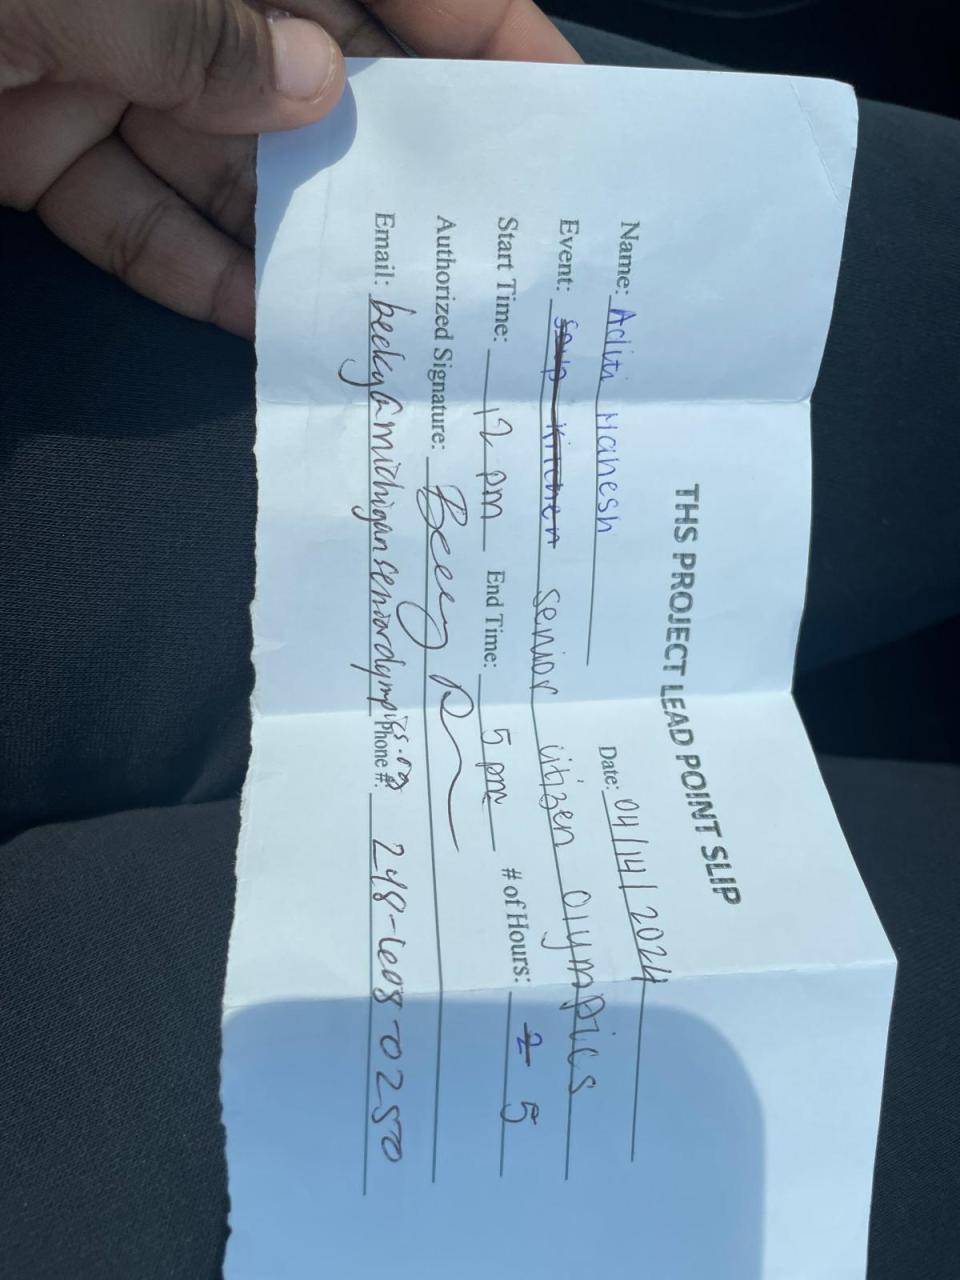 THS PROJECT LEAD POINT SLIP
Name: Aditi Mahesh Date: 04/14/2024
Event: soup kitchen senior citizen olympics
Start Time: 12 pm End Time: 5 pm # of Hours: 2 5
Authorized Signature: Becky
Email: becky@michiganseniorolympics.org Phone #: 248-608-0250